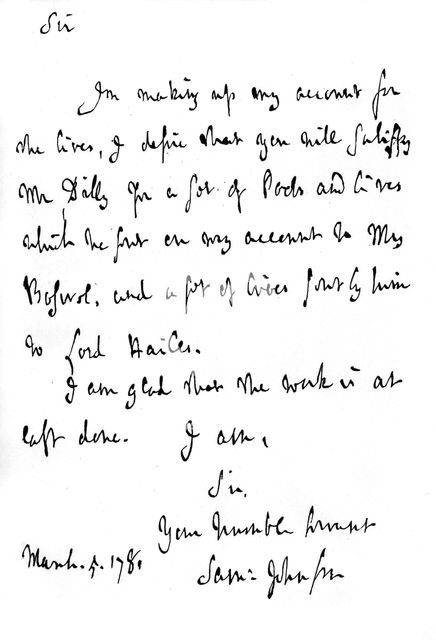 Sir
In making up my account for
the lives, I desire that you will satisfy
Mr Dilly for a set of Poets and Lives
which he sent on my account to Mrs
Boswel, and a set of Lives sent by him
to Lord Hailes.
I am glad that the work is at
last done. I am,
Sir,
Your humble servant
March. 5. 1781 Sam: Johnson